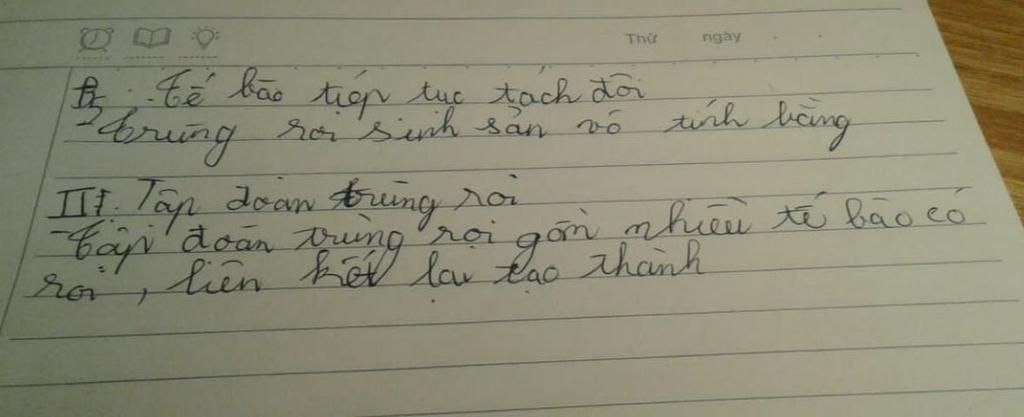 Thứ ngày
B5: tế bào tiếp tục tách đôi
- trùng roi sinh sản vô tính bằng
III. Tập đoàn trùng roi
- tập đoàn trùng rọi gồm nhiều tế bào có
roi, liên kết lại tạo thành